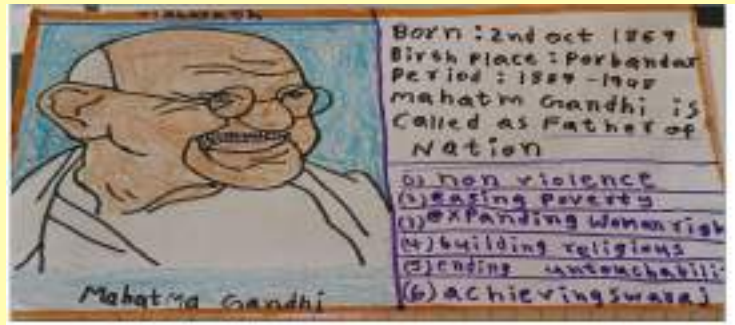 Born : 2nd oct 1869
Birth Place : Porbandar
Period : 1869 - 1948
Mahatm Gandhi is
Called as Father of
Nation
(1) non violence
(2) easing poverty
(3) expanding woman righ
(4) building religious
(5) ending untouchabili
(6) achieving swaraj
Mahatma Gandhi